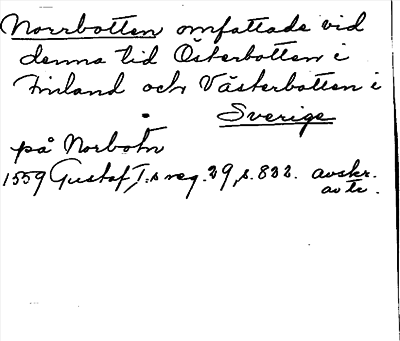 Norrbotten omfattade vid
denna tid Österbotten i
Finland och Västerbotten i
Sverige
på Norbotn
1559 Gustaf I:s reg. 29, s. 832. avskr.
av tr.